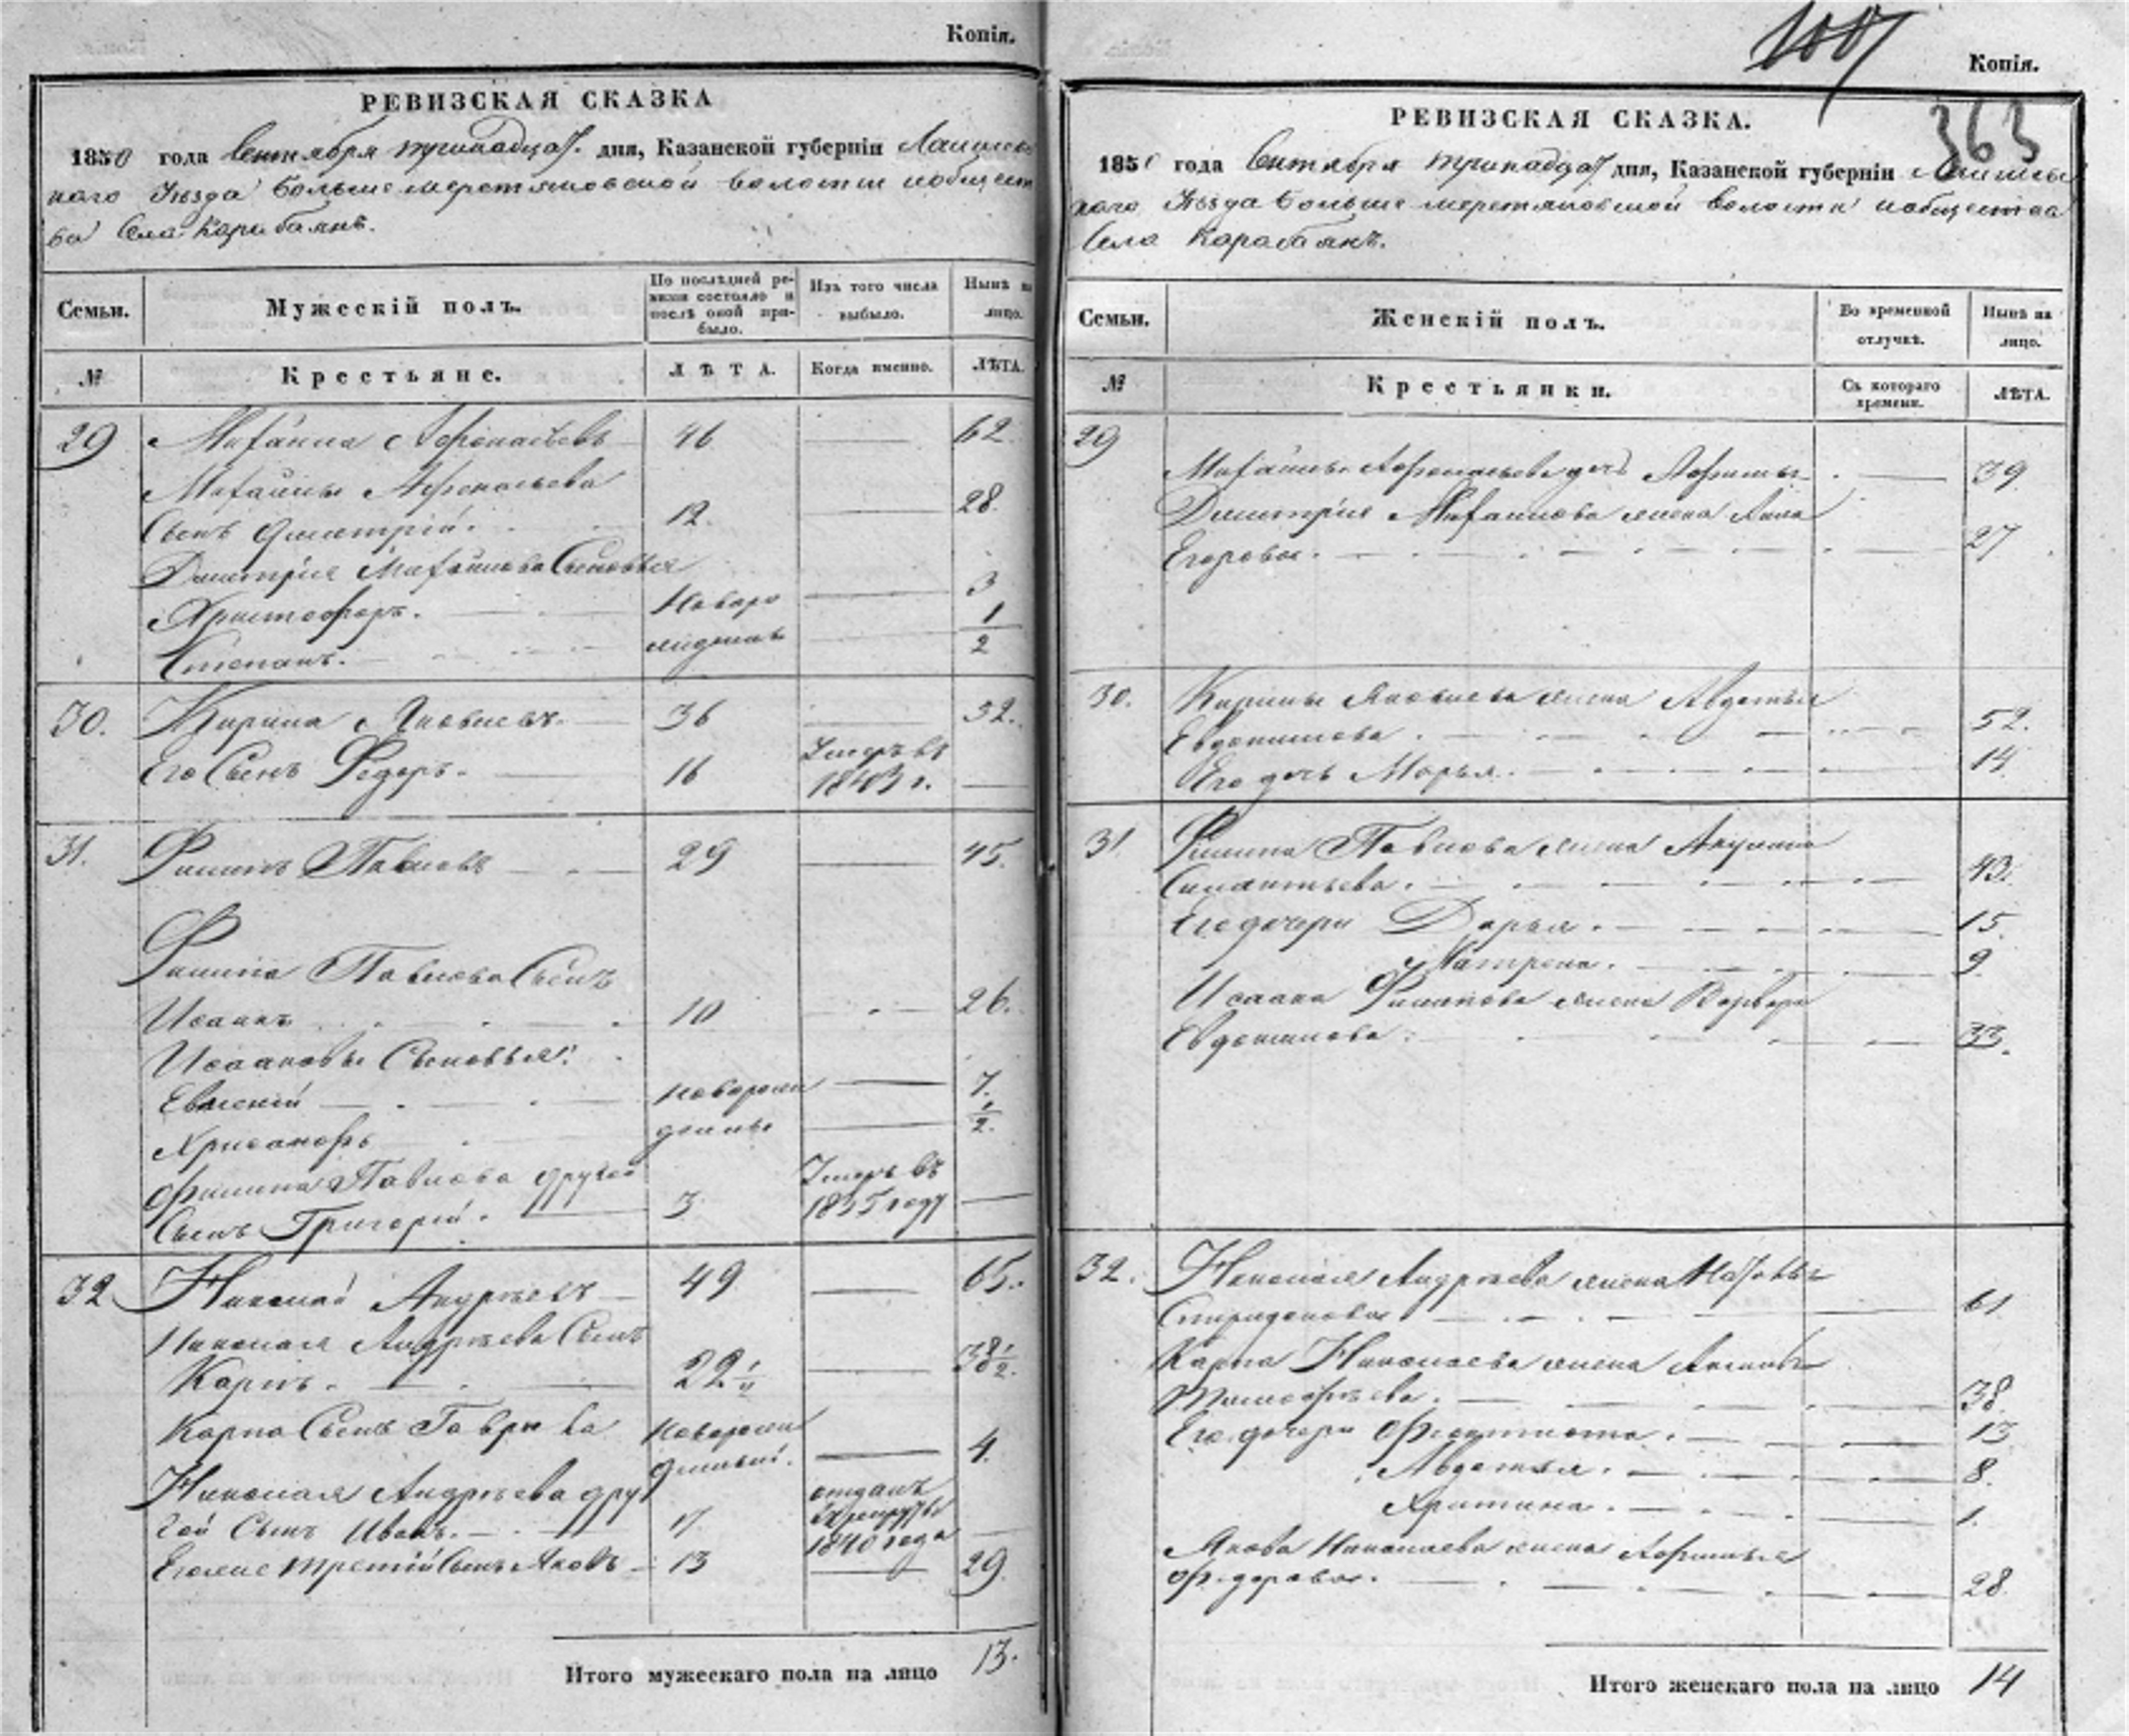 Копія.
РЕВИЗСКАЯ СКАЗКА
1850 года Сентября тринадцат. дня, Казанской губерніи Лаишевс
каго Уѣзда Большемеретяковской волости
Села Карабаянъ.
Семьи. Мужескій полъ. По послѣдней ре-
визіи состояло и
послѣ оной при-
было. Изъ того числа
выбыло. Нынѣ на
лицо.
№ Крестьяне. ЛѢТА. Когда именно. ЛѢТА.
29 Михаила Афонасьевъ 46 62
Михаилы Афонасьева
Сынъ Дмитрій. 12. 28.
Дмитрія Михаилова Сыновья
Христофоръ. Новоро 3
Степанъ. жденные 1/2
30. Кирила Яковлевъ 36 52.
Его Сынъ Федоръ. 16 Умеръ въ
1843 г.
31. Филипъ Павловъ 29 45.
Филипа Павлова Сынъ
Исаакъ 10 26.
Исааковы Сыновья:
Евгеній новорож 7.
Хрисанфъ денные 1/2.
Филипа Павлова другой
Сынъ Григорій. 3. Умеръ въ
1835 году
32 Николай Андрѣевъ 49 65.
Николая Андрѣева Сынъ
Карпъ. 22 38 1/2.
Карпа Сынъ Гаврила новорож
денный. 4.
Николая Андрѣева дру
гой Сынъ Иванъ. 17. отданъ
въ рекруты
1840 года
Его же третій Сынъ Яковъ 13 29.
Итого мужескаго пола на лицо 13.
Копія.
363
РЕВИЗСКАЯ СКАЗКА.
1850 года Сентября тринадцат дня, Казанской губерніи Лаишевс
каго Уѣзда Большемеретяковской волости
Села Карабаянъ.
Семьи. Женскій полъ. Во временной
отлучкѣ. Нынѣ на
лицо.
№ Крестьянки. Съ котораго
времени. ЛѢТА.
29 Михаилы Афонасьева дочь 39.
Дмитрія Михаилова жена Анна
Егорова. 27
30. Кирилы Яковлева жена Авдотья
Евдокимова. 52.
Его дочь Марья. 14.
31. Филипа Павлова жена Акулина
Силантьева. 43.
Его дочери Дарья. 15.
Матрена. 9.
Исаака Филипова жена Варвара
Евдокимова. 33.
32. Николая Андрѣева жена
Спиридонова 61
Карпа Николаева жена
Тимофѣева. 38.
Его дочери 13
Авдотья. 8.
Христина. 1.
Якова Николаева жена Афимья
Федорова. 28.
Итого женскаго пола на лицо 14